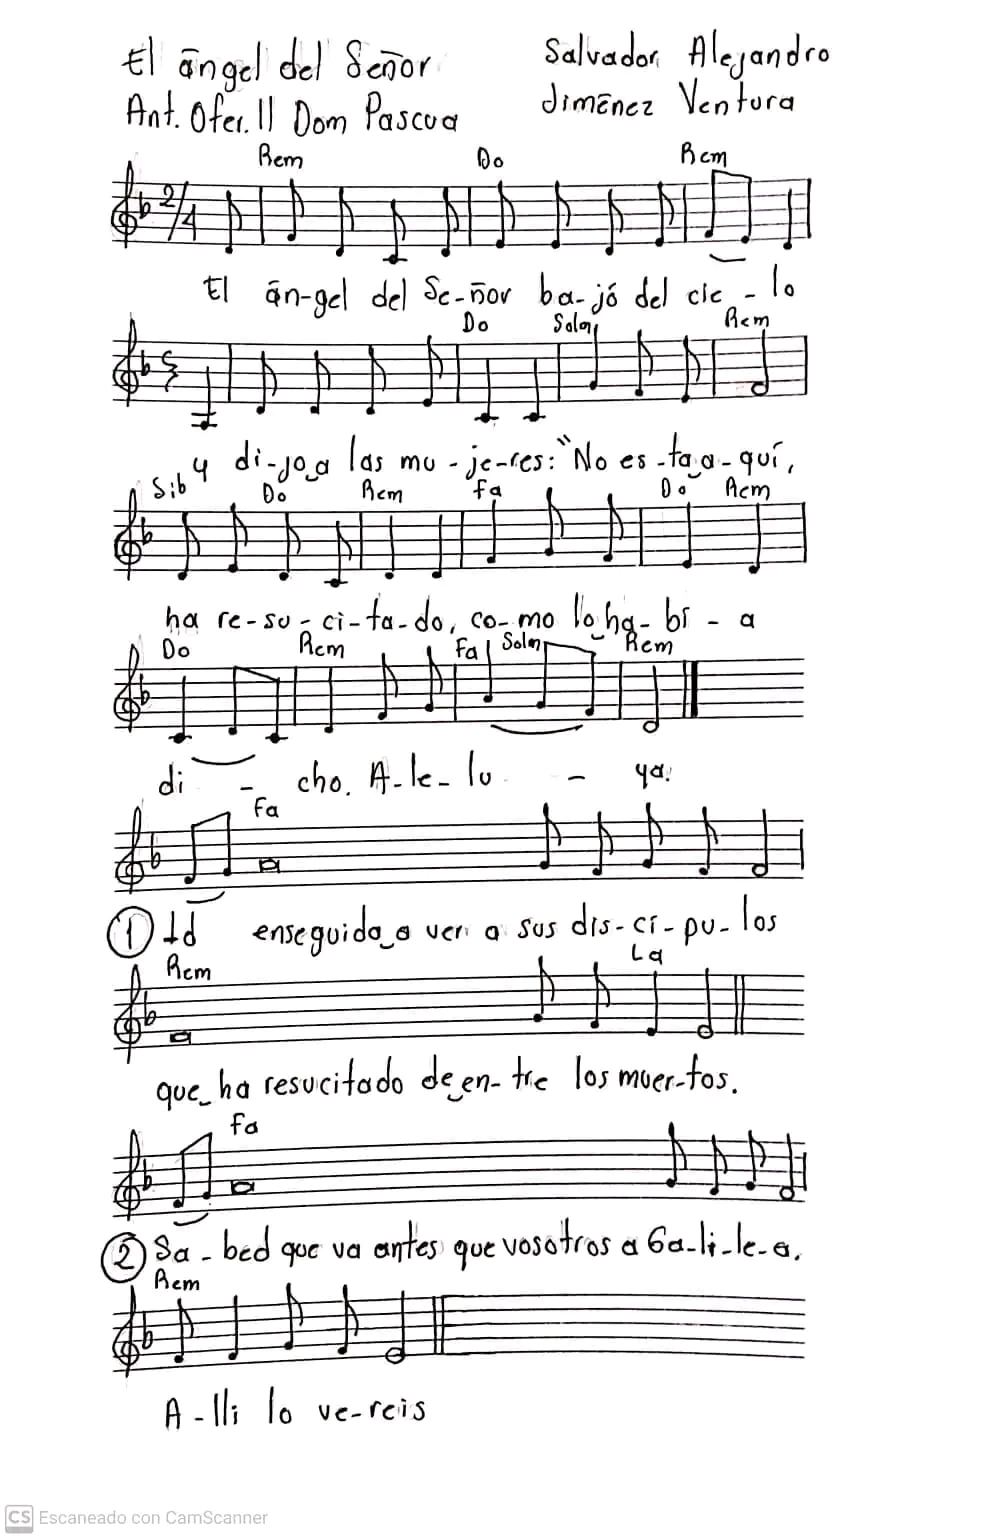 El ángel del Señor
Salvador Alejandro
Ant. Ofer. II Dom Pascua
Jiménez Ventura
Rem Do Rem
2/4
El án-gel del Se-ñor ba-jó del cie-lo
Do Solm Rem
y di-jo_a las mu-je-res: "No es-ta_a-quí,
Sib Do Rem Fa Do Rem
ha re-su-ci-ta-do, co-mo lo_ha-bí-a
Do Rem Fa Solm Rem
di - cho. A-le-lu - ya.
Fa
① Id enseguida_a ver a sus dis-cí-pu-los
Rem La
que_ha resucitado de_en-tre los muer-tos.
Fa
② Sa-bed que va antes que vosotros a Ga-li-le-a.
Rem
A-lli lo ve-reis
CS Escaneado con CamScanner